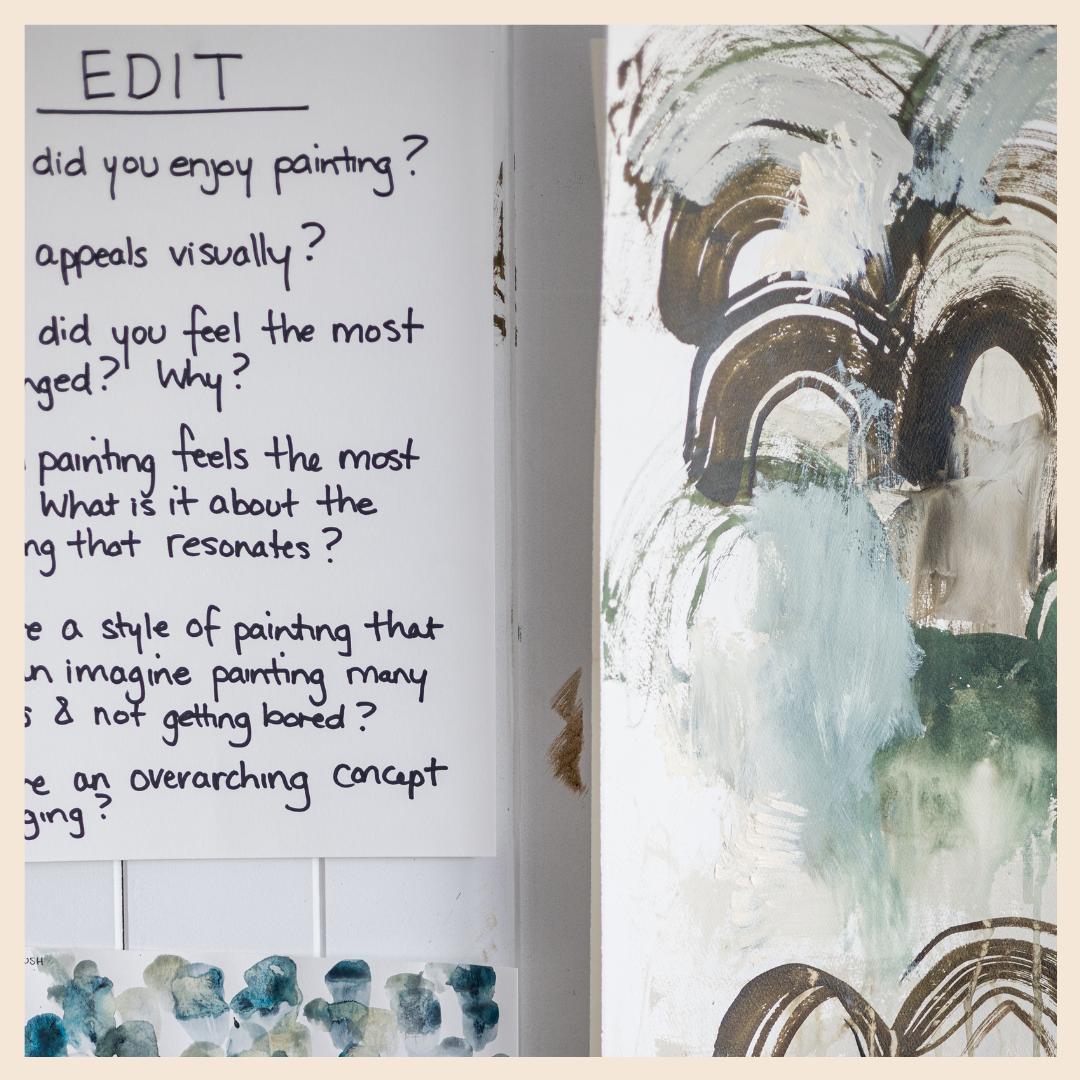 EDIT
did you enjoy painting?
appeals visually?
did you feel the most
nged? Why?
painting feels the most
What is it about the
ng that resonates?
e a style of painting that
n imagine painting many
s & not getting bored?
re an overarching concept
ging?
OSH